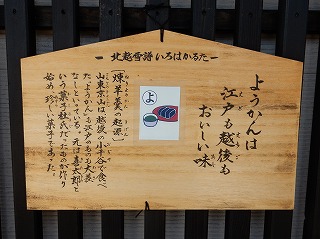 一 北越雪譜いろはかるた 一
ようかんは
江戸も越後も
おいしい味
よ
〔煉羊羹の起源〕
山東京山は越後の小千谷で食べ
た、ようかんも江戸のものも大差
なしといっている。元は喜太郎と
いう菓子杜氏だったものが作り
始め、珍しい菓子であった。